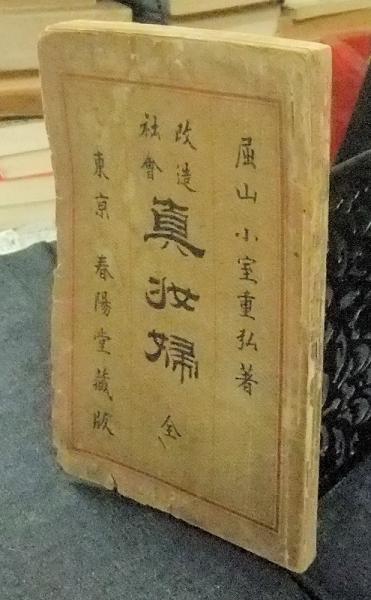 屈山 小室重弘著
改造
社會
真女婦 全
東京 春陽堂藏版